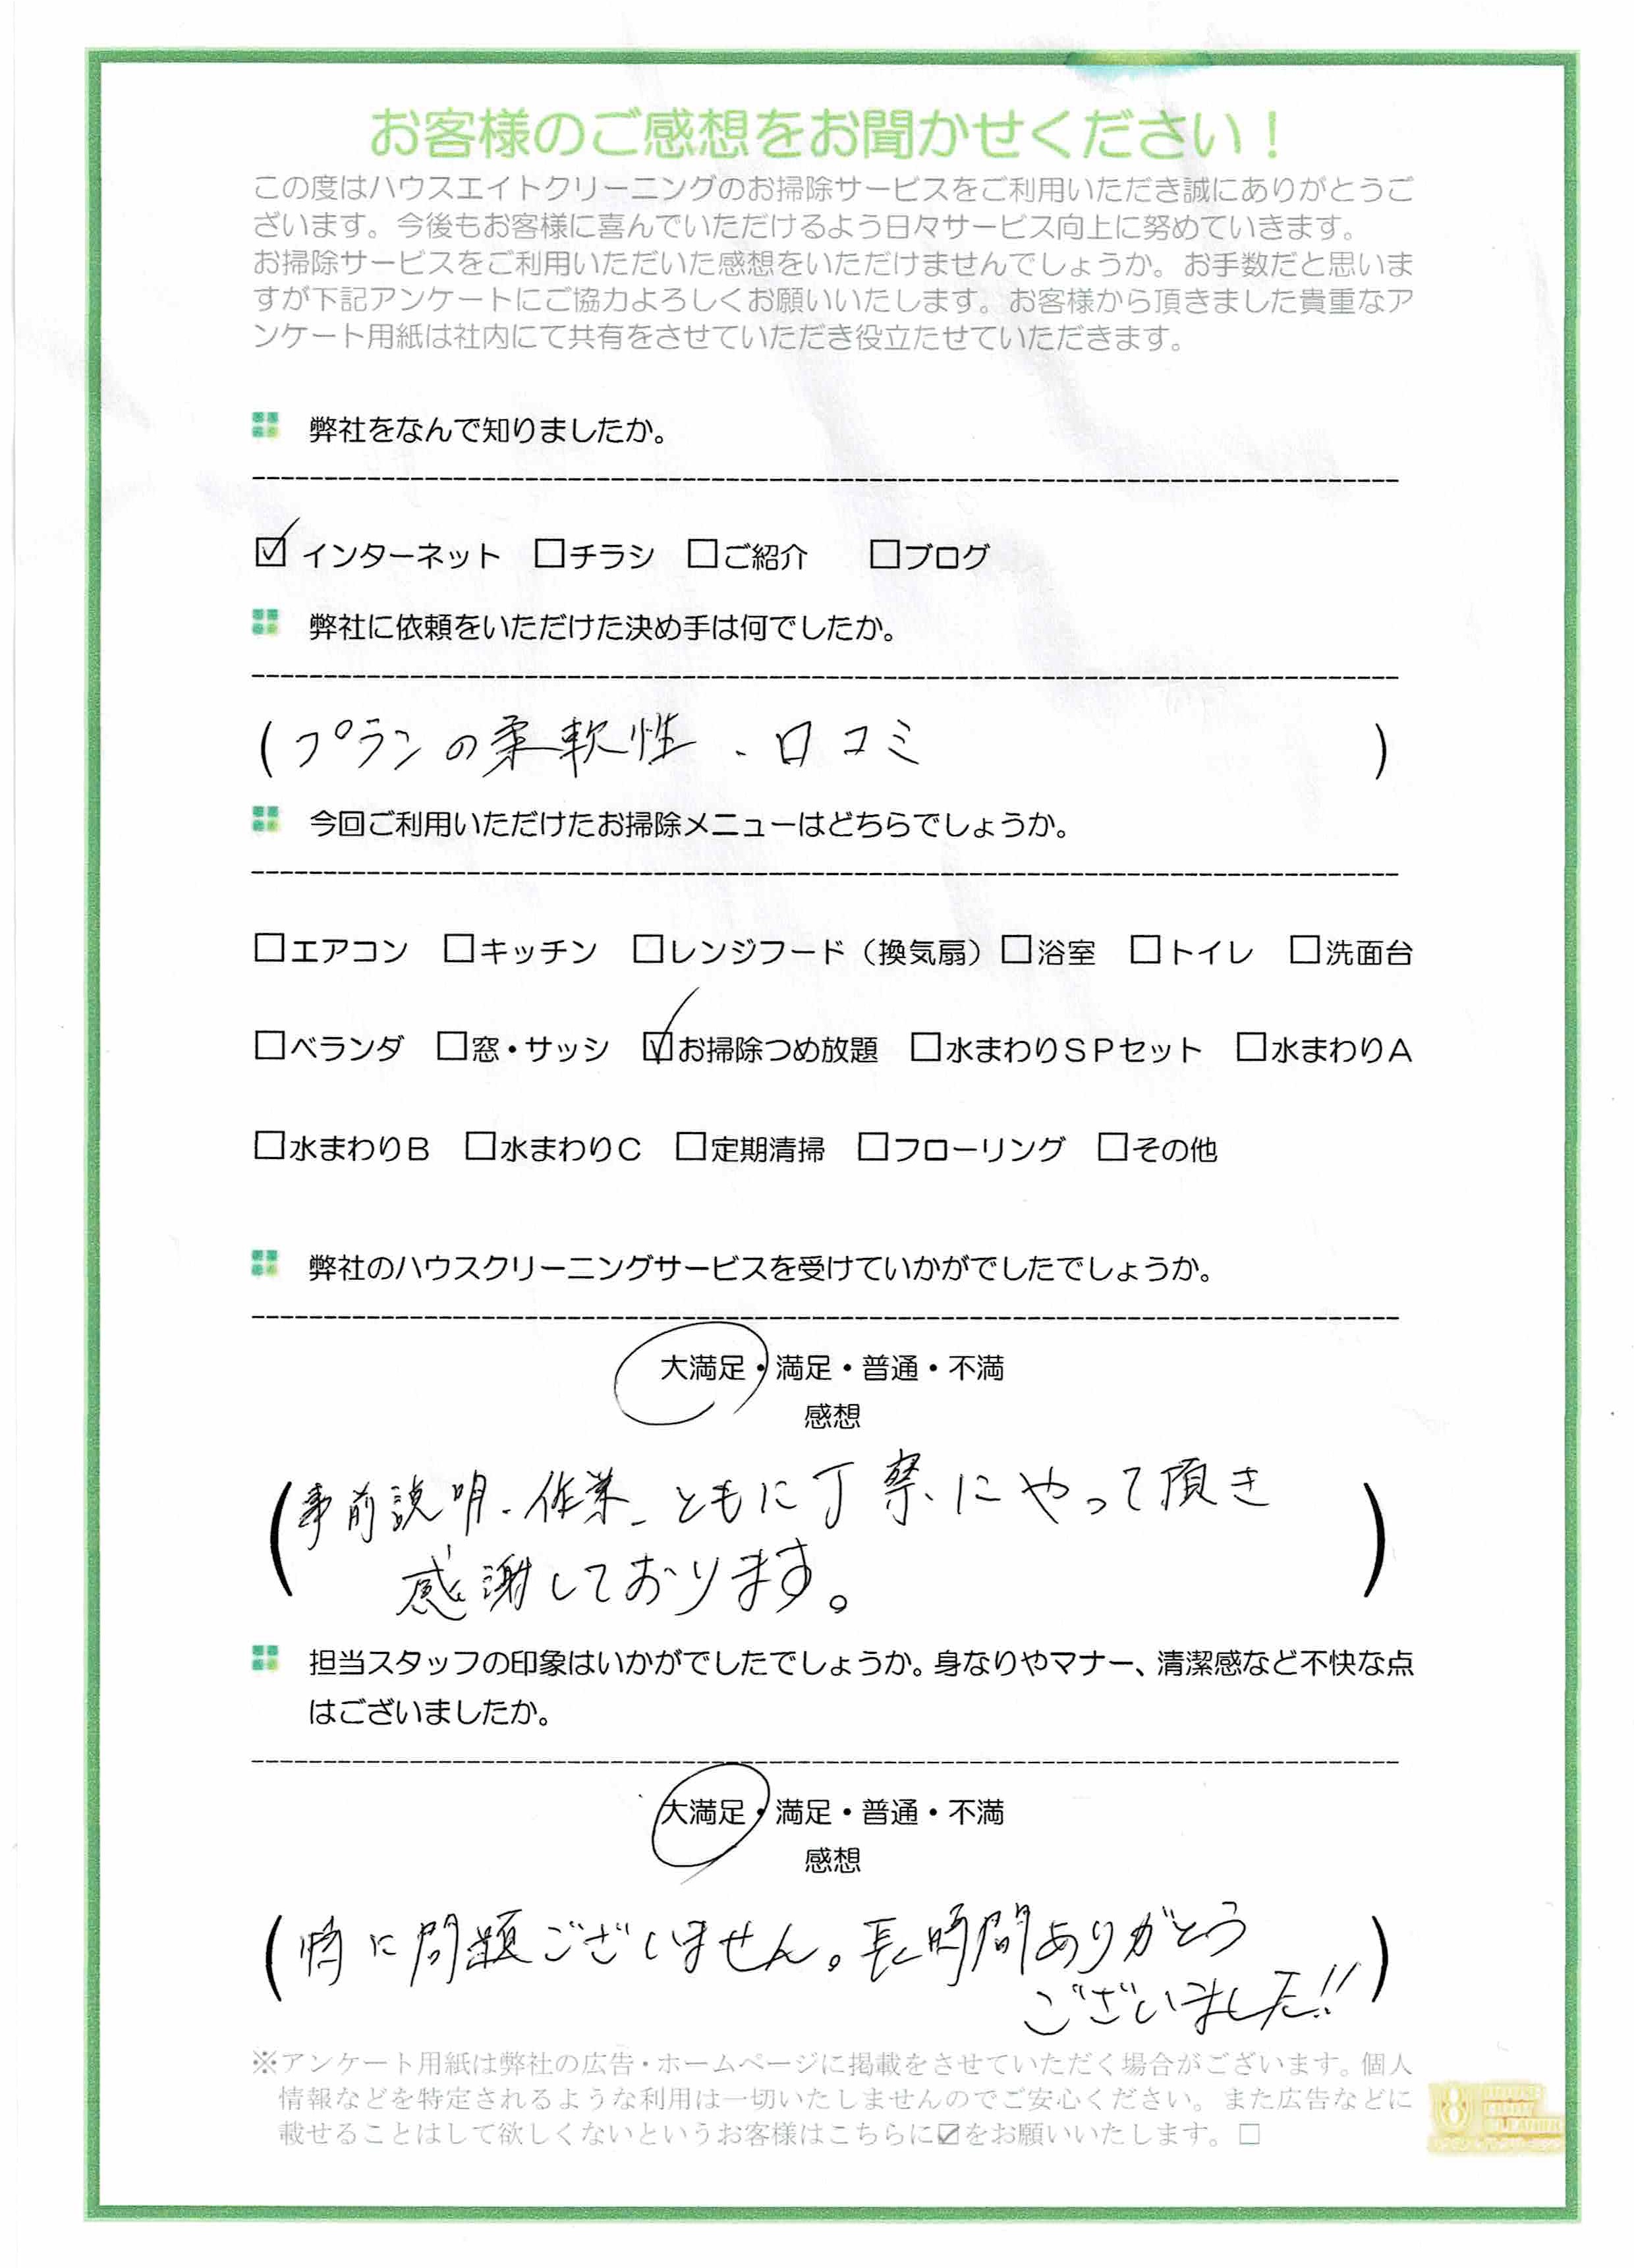 お客様のご感想をお聞かせください！
この度はハウスエイトクリーニングのお掃除サービスをご利用いただき誠にありがとうご
ざいます。今後もお客様に喜んでいただけるよう日々サービス向上に努めていきます。
お掃除サービスをご利用いただいた感想をいただけませんでしょうか。お手数だと思いま
すが下記アンケートにご協力よろしくお願いいたします。お客様から頂きました貴重なア
ンケート用紙は社内にて共有をさせていただき役立たせていただきます。
弊社をなんで知りましたか。
☑インターネット □チラシ □ご紹介 □ブログ
弊社に依頼をいただけた決め手は何でしたか。
（プランの柔軟性、口コミ）
今回ご利用いただけたお掃除メニューはどちらでしょうか。
□エアコン □キッチン □レンジフード（換気扇）□浴室 □トイレ □洗面台
□ベランダ □窓・サッシ ☑お掃除つめ放題 □水まわりＳＰセット □水まわりＡ
□水まわりＢ □水まわりＣ □定期清掃 □フローリング □その他
弊社のハウスクリーニングサービスを受けていかがでしたでしょうか。
大満足・満足・普通・不満
感想
（事前説明、作業、ともに丁寧にやって頂き
感謝しております。）
担当スタッフの印象はいかがでしたでしょうか。身なりやマナー、清潔感など不快な点
はございましたか。
大満足・満足・普通・不満
感想
（特に問題ございません。長時間ありがとう
ございました!!）
※アンケート用紙は弊社の広告・ホームページに掲載をさせていただく場合がございます。個人
情報などを特定されるような利用は一切いたしませんのでご安心ください。また広告などに
載せることはして欲しくないというお客様はこちらに☑をお願いいたします。□